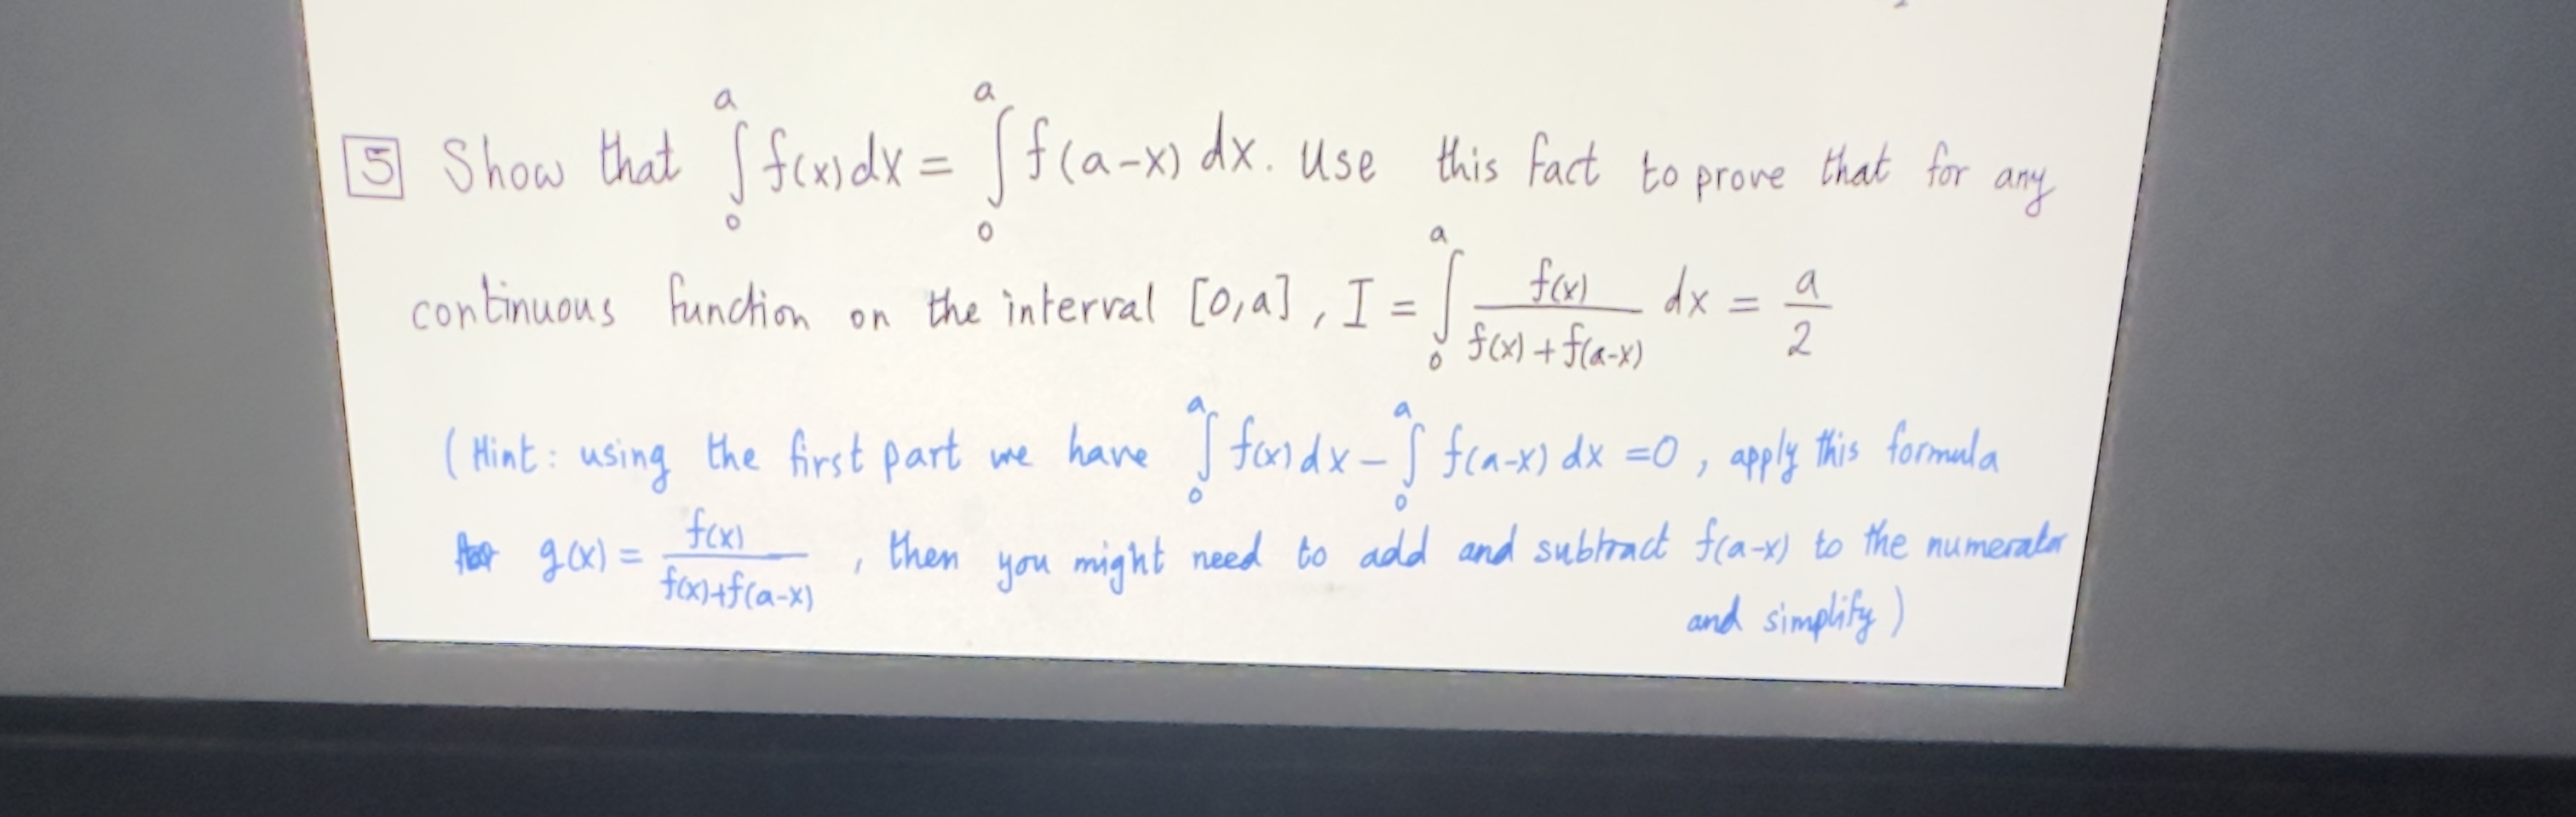 5 Show that ∫₀ᵃ f(x) dx = ∫₀ᵃ f(a-x) dx. Use this fact to prove that for any
continuous function on the interval [0,a], I = ∫₀ᵃ f(x) / (f(x) + f(a-x)) dx = a/2
(Hint: using the first part we have ∫₀ᵃ f(x) dx - ∫₀ᵃ f(a-x) dx = 0, apply this formula
for g(x) = f(x) / (f(x)+f(a-x)), then you might need to add and subtract f(a-x) to the numerator
and simplify)